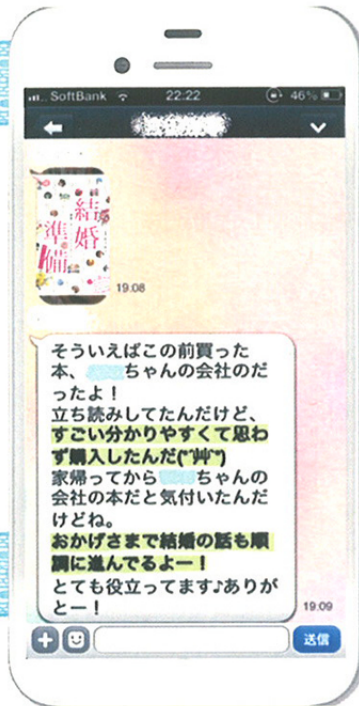 SoftBank 22:22 46%
結婚
準備
19:08
そういえばこの前買った
本、ちゃんの会社のだ
ったよ！
立ち読みしてたんだけど、
すごい分かりやすくて思わ
ず購入したんだ(*´艸`*)
家帰ってからちゃんの
会社の本だと気付いたんだ
けどね。
おかげさまで結婚の話も順
調に進んでるよー！
とても役立ってます♪ありが
とー！
19:09
送信